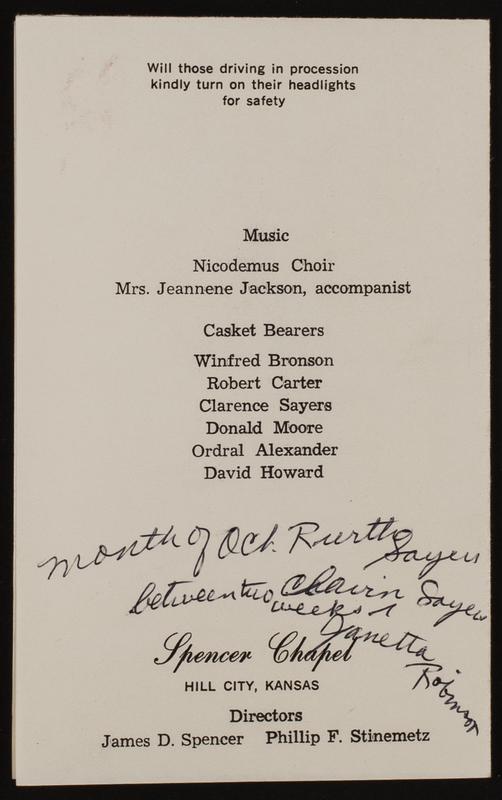 Will those driving in procession
kindly turn on their headlights
for safety
Music
Nicodemus Choir
Mrs. Jeannene Jackson, accompanist
Casket Bearers
Winfred Bronson
Robert Carter
Clarence Sayers
Donald Moore
Ordral Alexander
David Howard
month of Oct. Ruth Sayers
between two Sayers
weeks
Janetta
Robinson
Spencer Chapel
HILL CITY, KANSAS
Directors
James D. Spencer Phillip F. Stinemetz